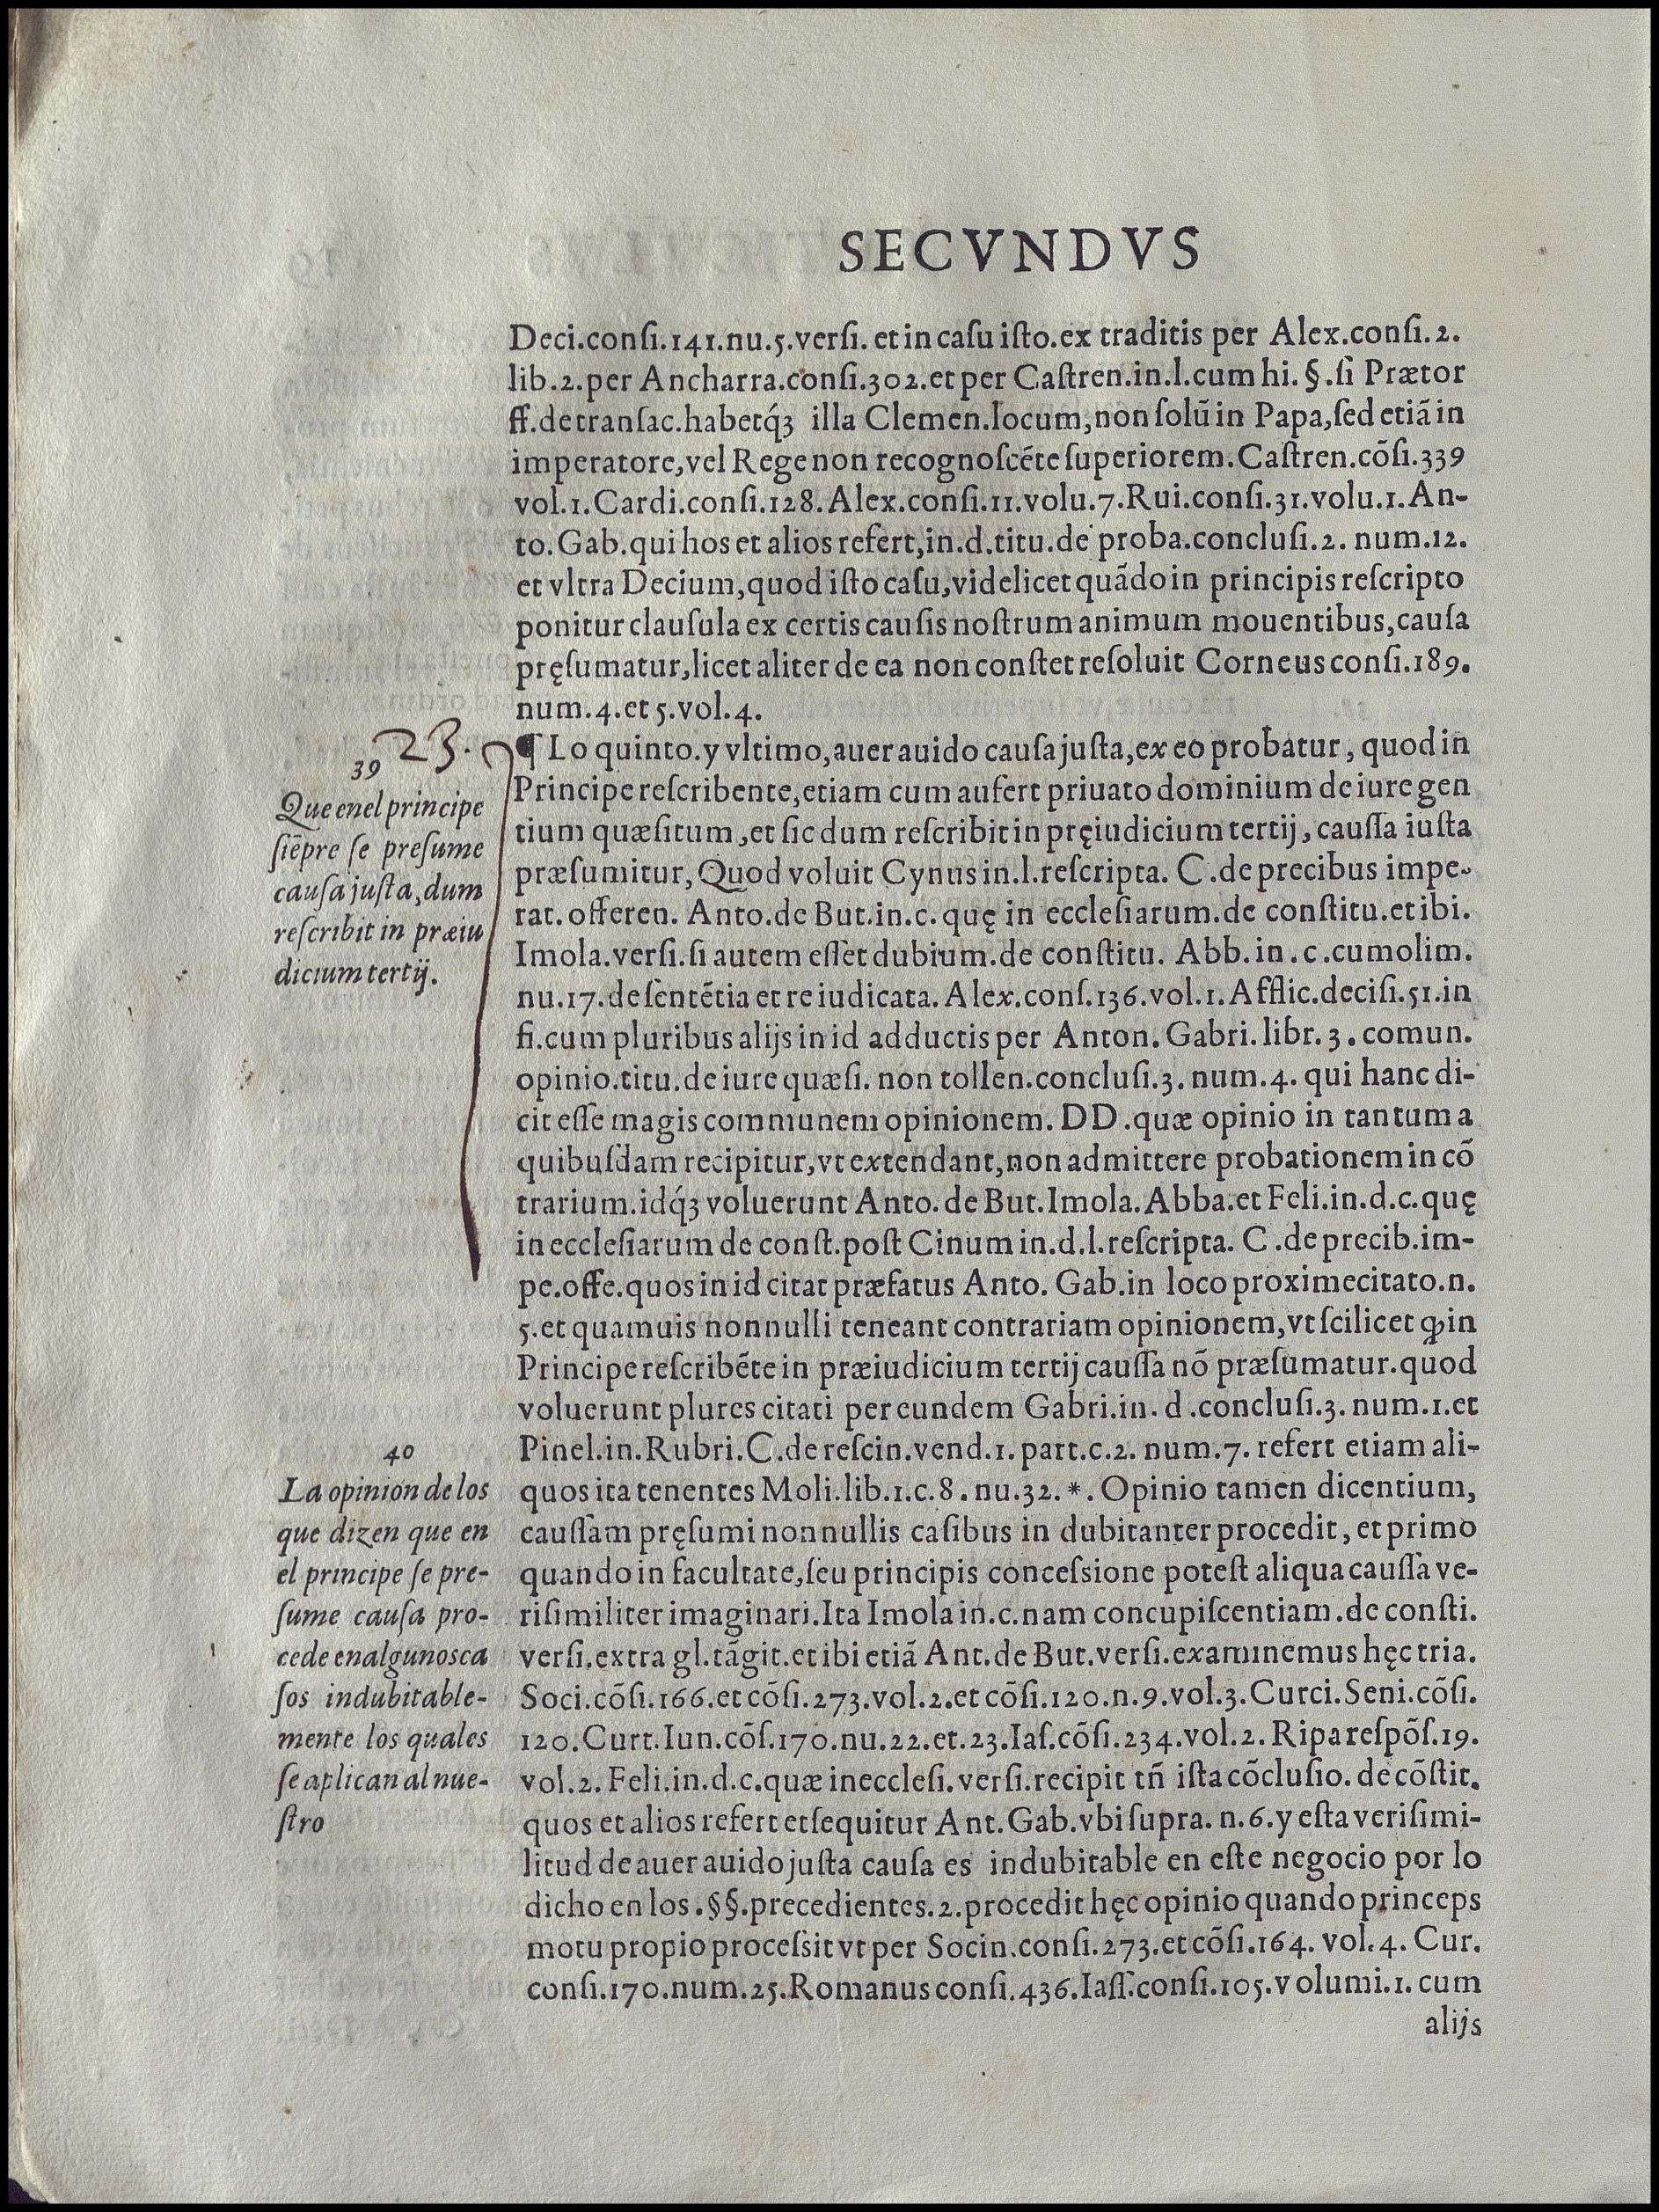 SECVNDVS
Deci.conſi.141.nu.5.verſi. et in caſu iſto.ex traditis per Alex.conſi.2.
lib.2.per Ancharra.conſi.302.et per Caſtren.in.l.cum hi. §.ſi Prætor
ff.de tranſac.habetq́ꝫ illa Clemen.locum,non ſolũ in Papa,ſed etiã in
imperatore,vel Rege non recognoſcẽte ſuperiorem.Caſtren.cõſi.339
vol.1.Cardi.conſi.128.Alex.conſi.11.volu.7.Rui.conſi.31.volu.1.An-
to.Gab.qui hos et alios refert,in.d.titu.de proba.concluſi.2. num.12.
et vltra Decium,quod iſto caſu,videlicet quãdo in principis reſcripto
ponitur clauſula ex certis cauſis noſtrum animum mouentibus,cauſa
pręſumatur,licet aliter de ea non conſtet reſoluit Corneus conſi.189.
num.4.et 5.vol.4.
23.
39
Que enel principe
ſiẽpre ſe preſume
cauſa juſta,dum
reſcribit in præiu
dicium tertij.
¶ Lo quinto.y vltimo,auer auido cauſa juſta,ex eo probatur, quod in
Principe reſcribente,etiam cum aufert priuato dominium de iure gen
tium quæſitum,et ſic dum reſcribit in pręiudicium tertij, cauſſa iuſta
præſumitur, Quod voluit Cynus in.l.reſcripta. C.de precibus impe-
rat. offeren. Anto.de But.in.c. quę in eccleſiarum.de conſtitu.et ibi.
Imola.verſi.ſi autem eſſet dubium.de conſtitu. Abb.in.c.cum olim.
nu.17.de ſentẽtia et re iudicata. Alex.conſ.136.vol.1.Afflic.deciſi.51.in
fi.cum pluribus alijs in id adductis per Anton. Gabri. libr. 3. comun.
opinio.titu.de iure quæſi. non tollen.concluſi.3. num.4. qui hanc di-
cit eſſe magis communem opinionem. DD.quæ opinio in tantum a
quibuſdam recipitur,vt extendant,non admittere probationem in cõ
trarium.idq́ꝫ voluerunt Anto. de But. Imola. Abba.et Feli.in.d.c.quę
in eccleſiarum de conſt.poſt Cinum in.d.l.reſcripta. C.de precib.im-
pe.offe.quos in id citat præfatus Anto. Gab.in loco proxime citato.n.
5.et quamuis nonnulli teneant contrariam opinionem,vt ſcilicet ꝙ in
Principe reſcribẽte in præiudicium tertij cauſſa nõ præſumatur.quod
voluerunt plures citati per eundem Gabri.in. d.concluſi.3. num.1.et
Pinel.in.Rubri.C.de reſcin.vend.1. part.c.2. num.7. refert etiam ali-
quos ita tenentes Moli.lib.1.c.8. nu.32.*. Opinio tamen dicentium,
cauſſam pręſumi nonnullis caſibus in dubitanter procedit, et primo
quando in facultate,ſeu principis conceſsione poteſt aliqua cauſſa ve-
riſimiliter imaginari.Ita Imola in.c.nam concupiſcentiam.de conſti.
verſi.extra gl.tãgit.et ibi etiã Ant.de But.verſi.examinemus hęc tria.
Soci.cõſi.166.et cõſi.273.vol.2.et cõſi.120.n.9.vol.3.Curci.Seni.cõſi.
120.Curt.Iun.cõſ.170.nu.22.et.23.Iaſ.cõſi.234.vol.2. Ripa reſpõſ.19.
vol.2. Feli.in.d.c.quæ in eccleſi.verſi.recipit tñ iſta cõcluſio. de cõſtit.
quos et alios refert et ſequitur Ant.Gab.vbi ſupra. n.6.y eſta veriſimi-
litud de auer auido juſta cauſa es indubitable en eſte negocio por lo
dicho en los.§§.precedientes.2.procedit hęc opinio quando princeps
motu propio proceſsit vt per Socin.conſi.273.et cõſi.164. vol.4. Cur.
conſi.170.num.25.Romanus conſi.436.Iaſſ.conſi.105.volumi.1. cum
alijs
40
La opinion de los
que dizen que en
el principe ſe pre-
ſume cauſa pro-
cede en algunos ca
ſos indubitable-
mente los quales
ſe aplican al nue-
ſtro